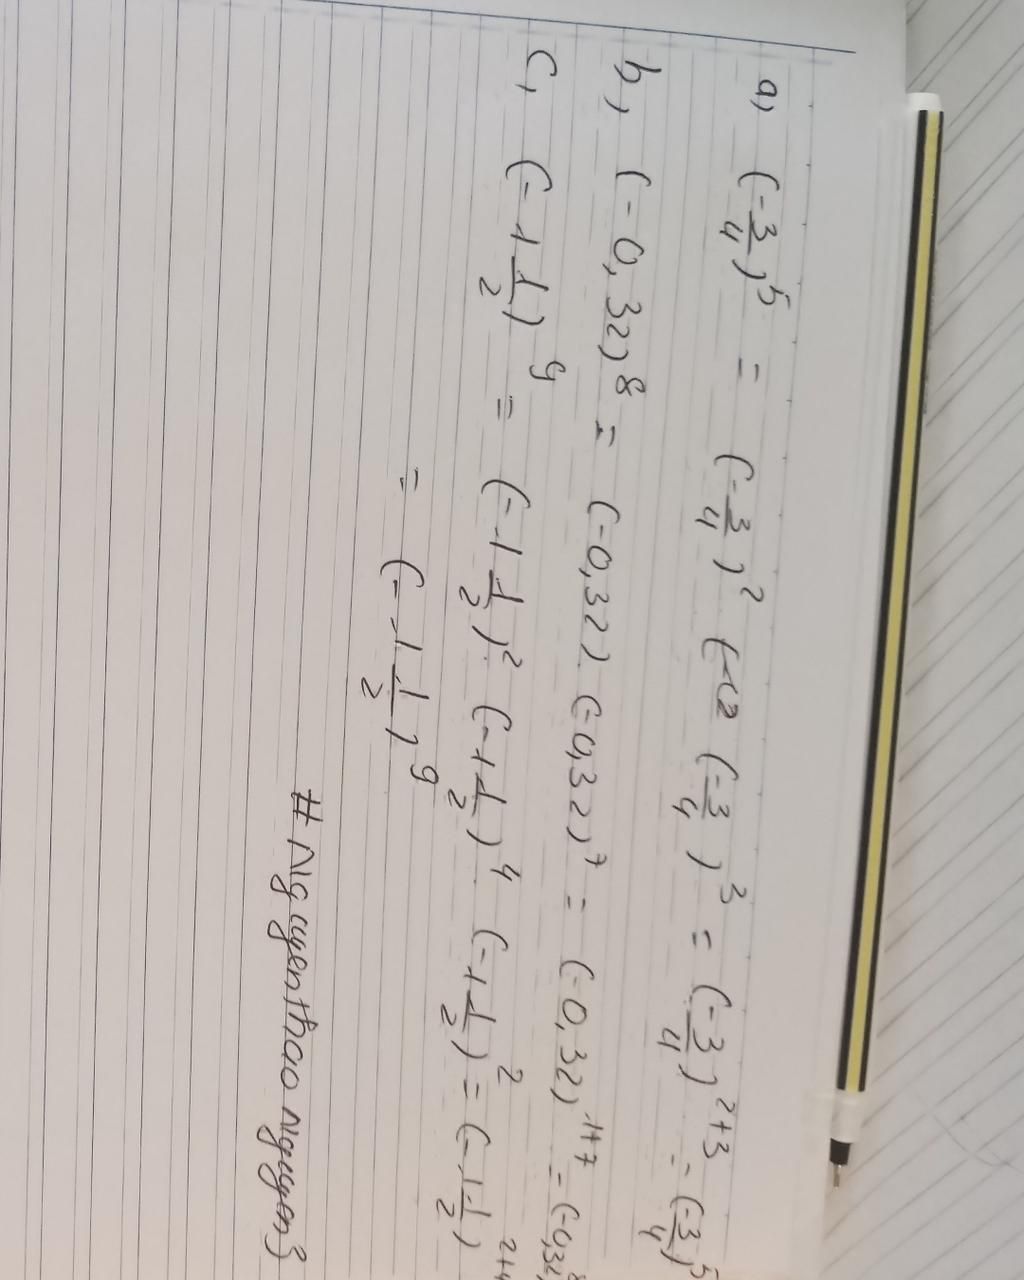 a, (-3/4)^5 = (-3/4)^2 (-3/4)^3 = (-3/4)^2+3 = (-3/4)^5
b, (-0,32)^8 = (-0,32) (-0,32)^7 = (-0,32)^1+7 = (-0,32)^8
c, (-1 1/2)^9 = (-1 1/2)^2 (-1 1/2)^4 (-1 1/2)^2 = (-1 1/2)^2+4
= (-1 1/2)^9
# Nguyenthao nguyen3